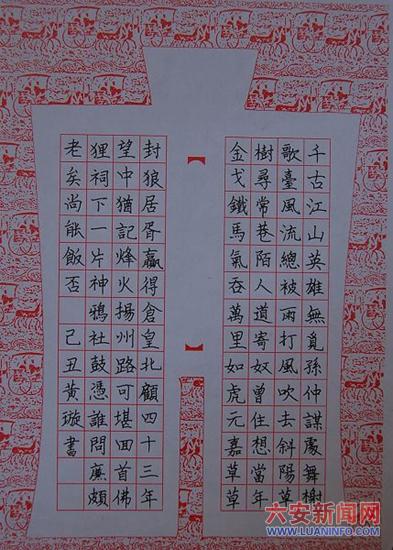 千古江山英雄無覓孫仲謀處舞榭
歌臺風流總被雨打風吹去斜陽草
樹尋常巷陌人道寄奴曾住想當年
金戈鐵馬氣吞萬里如虎元嘉草草
封狼居胥贏得倉皇北顧四十三年
望中猶記烽火揚州路可堪回首佛
狸祠下一片神鴉社鼓憑誰問廉頗
老矣尚能飯否 己丑黃璇書
六安新闻网
WWW.LUANINFO.COM